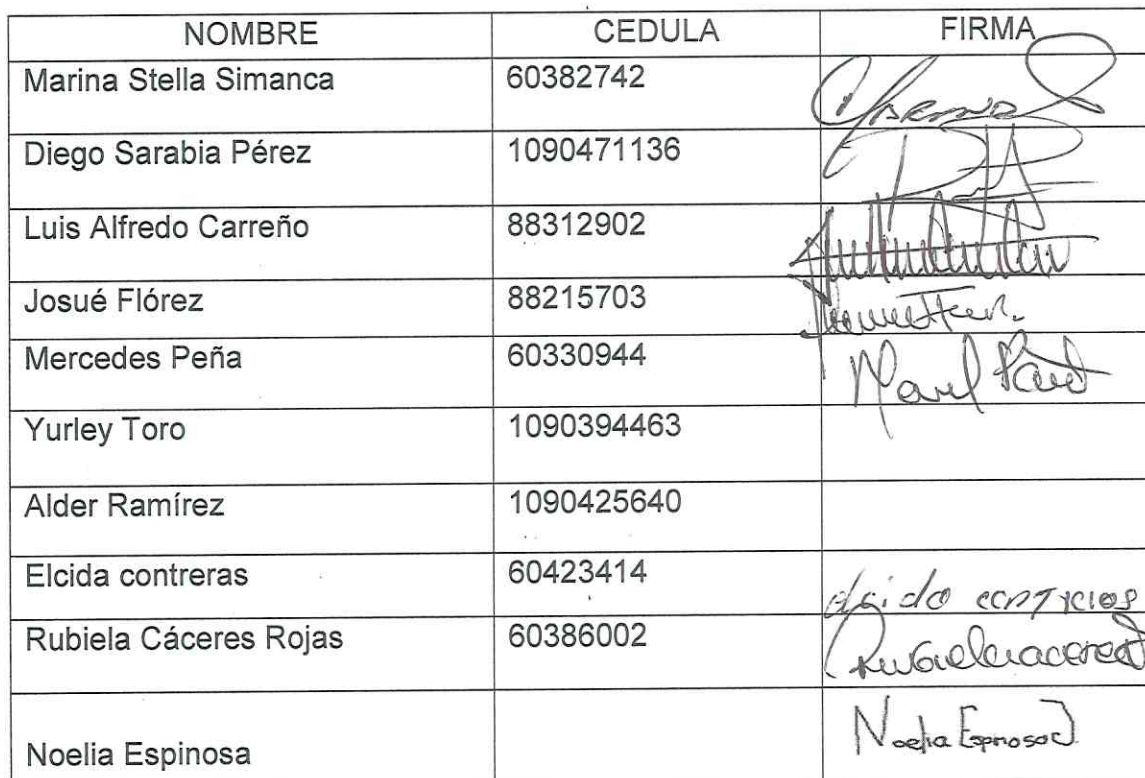 NOMBRE CEDULA FIRMA
Marina Stella Simanca 60382742
Diego Sarabia Pérez 1090471136
Luis Alfredo Carreño 88312902
Josué Flórez 88215703
Mercedes Peña 60330944
Yurley Toro 1090394463
Alder Ramírez 1090425640
Elcida contreras 60423414
Rubiela Cáceres Rojas 60386002
Noelia Espinosa Noelia Espinosa